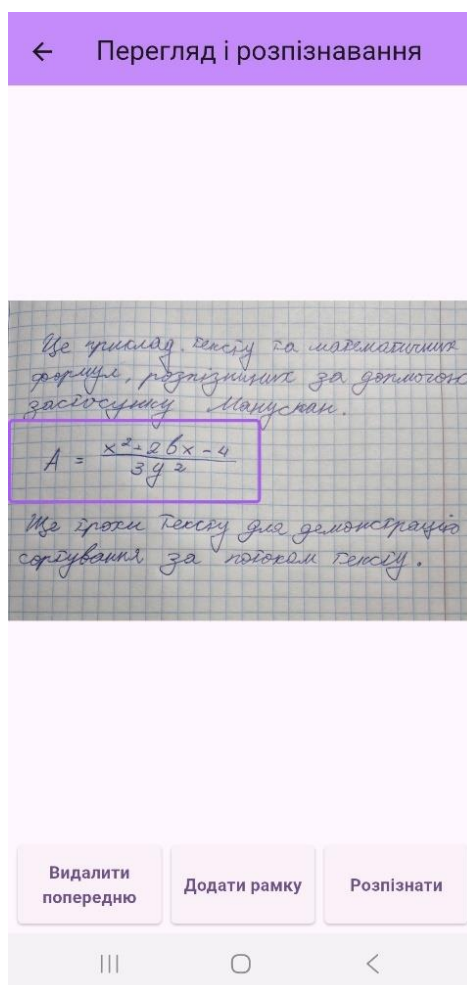 Перегляд і розпізнавання
Це приклад тексту та математичних
формул, розпізнаних за допомогою
застосунку Манускан.
A = \frac{x^2+2bx-4}{3y^2}
Ще трохи тексту для демонстрацію
сортування за потоком тексту.
Видалити
попередню
Додати рамку
Розпізнати